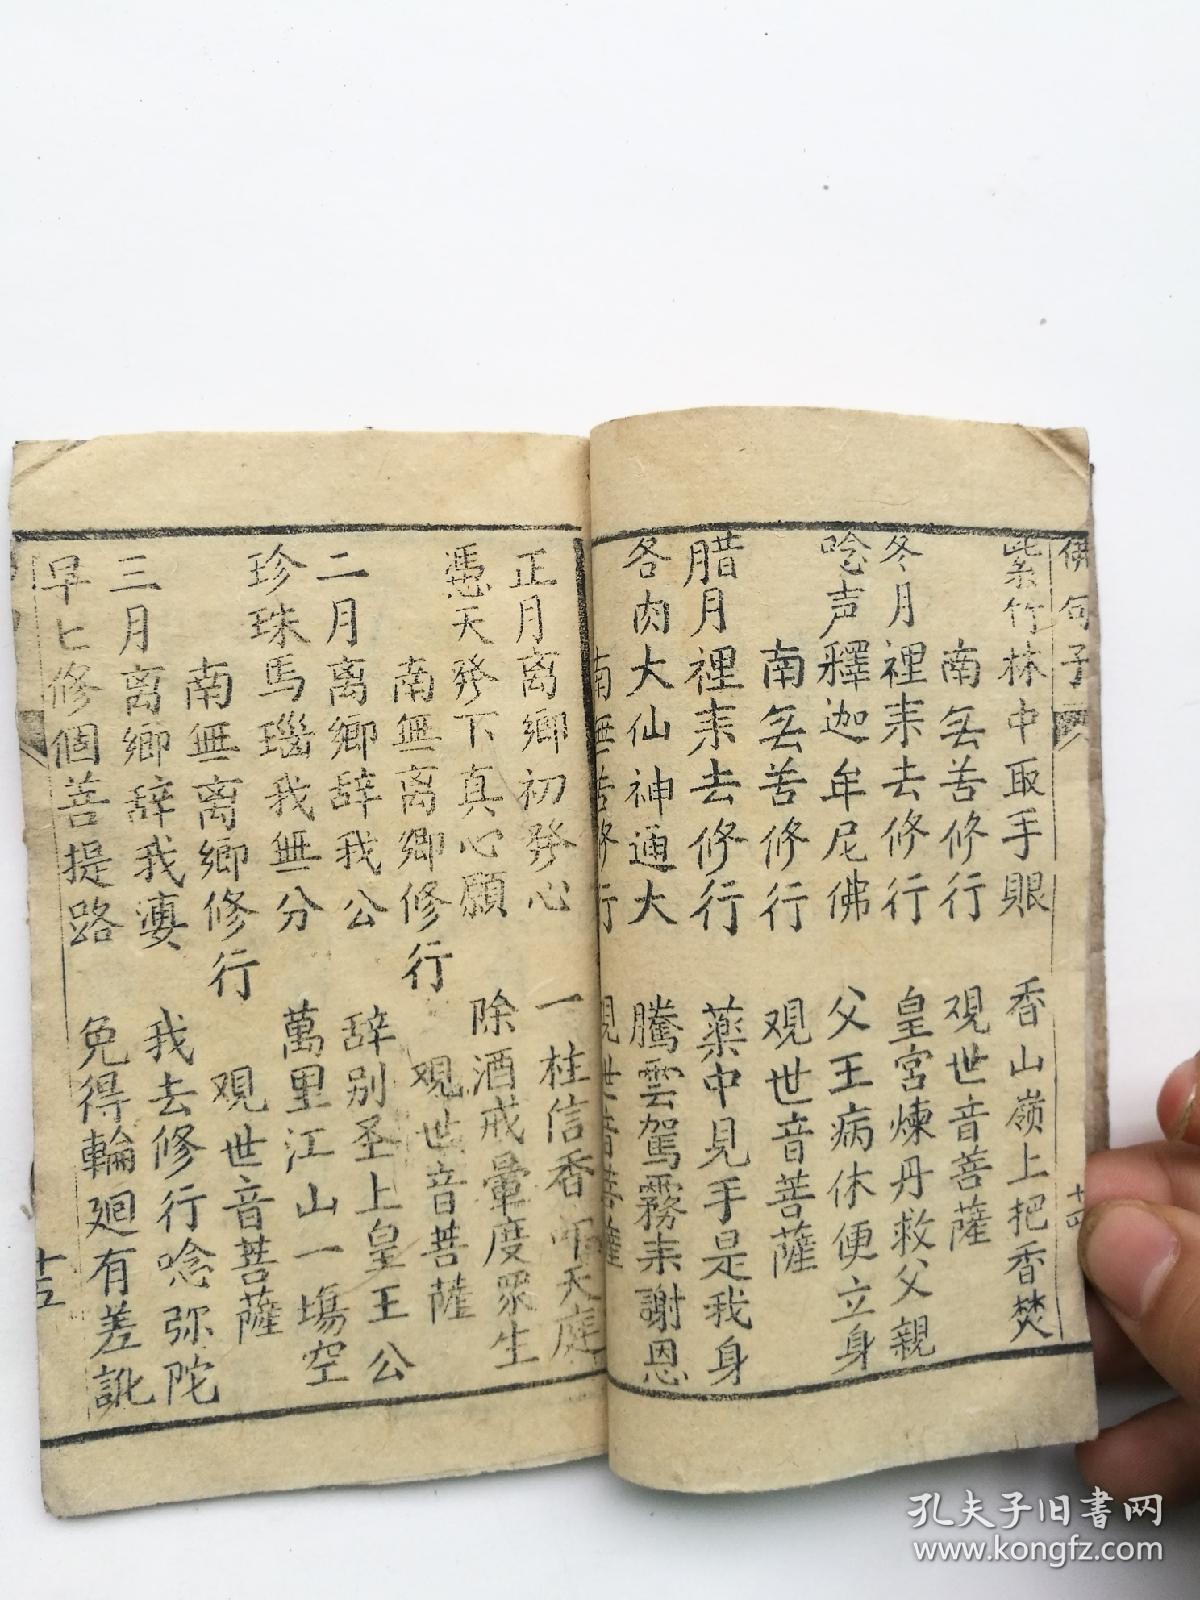 佛句子
十四
紫竹林中取手眼　香山嶺上把香焚
南無苦修行　观世音菩薩
冬月裡来去修行　皇宮煉丹救父親
唸声釋迦牟尼佛　父王病体便立身
南無苦修行　观世音菩薩
腊月裡来去修行　薬中見手是我身
各肉大仙神通大　騰雲駕霧来謝恩
南無苦修行　観世音菩薩
正月离鄉初發心　一柱信香　天庭
憑天發下真心願　除酒戒暈度眾生
南無离鄉修行　观世音菩薩
二月离鄉辞我公　辞别圣上皇王公
珍珠馬瑙我無分　萬里江山一塲空
南無离鄉修行　观世音菩薩
三月离鄉辞我婆　我去修行唸弥陀
早匕修個菩提路　免得輪廻有差訛
十五
孔夫子旧书网
www.kongfz.com